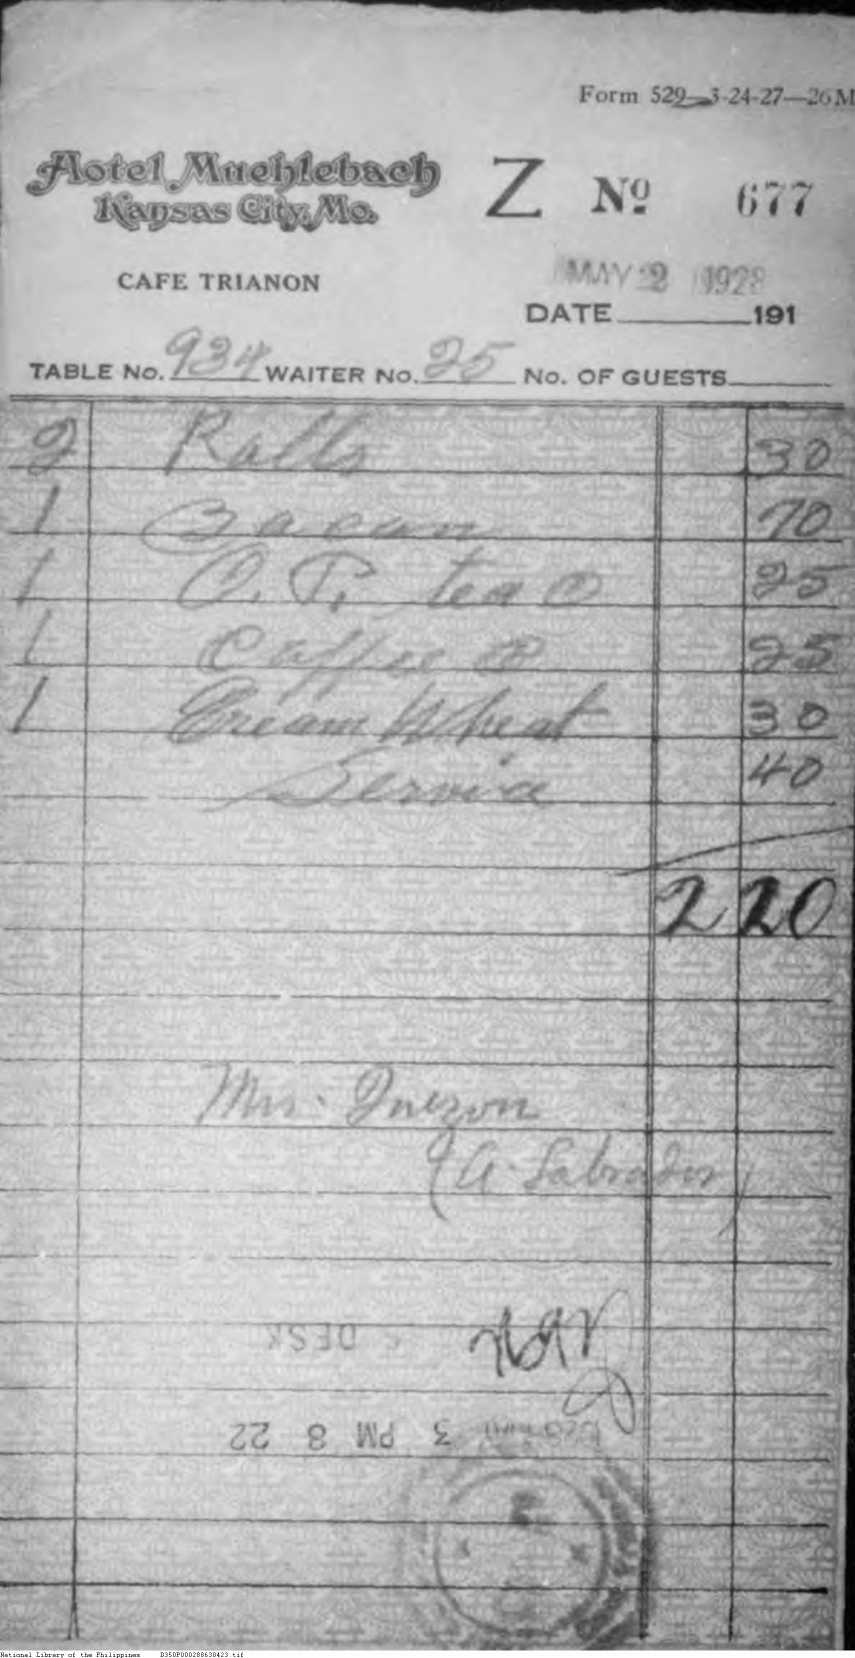 Form 529—3-24-27—26M
Hotel Muehlebach
Kansas City, Mo.
Z No 677
CAFE TRIANON
MAY 2 1928
DATE 191
TABLE No. 934 WAITER No. 25 No. OF GUESTS
2 Rolls 30
1 Bacon 70
1 O. P. tea O 25
1 Coffee 25
1 Cream Wheat 30
Service 40
2 20
Mrs. Quezon
(A. Labrador)
DESK
3 PM 8 22
National Library of the Philippines D350P000288638423.tif